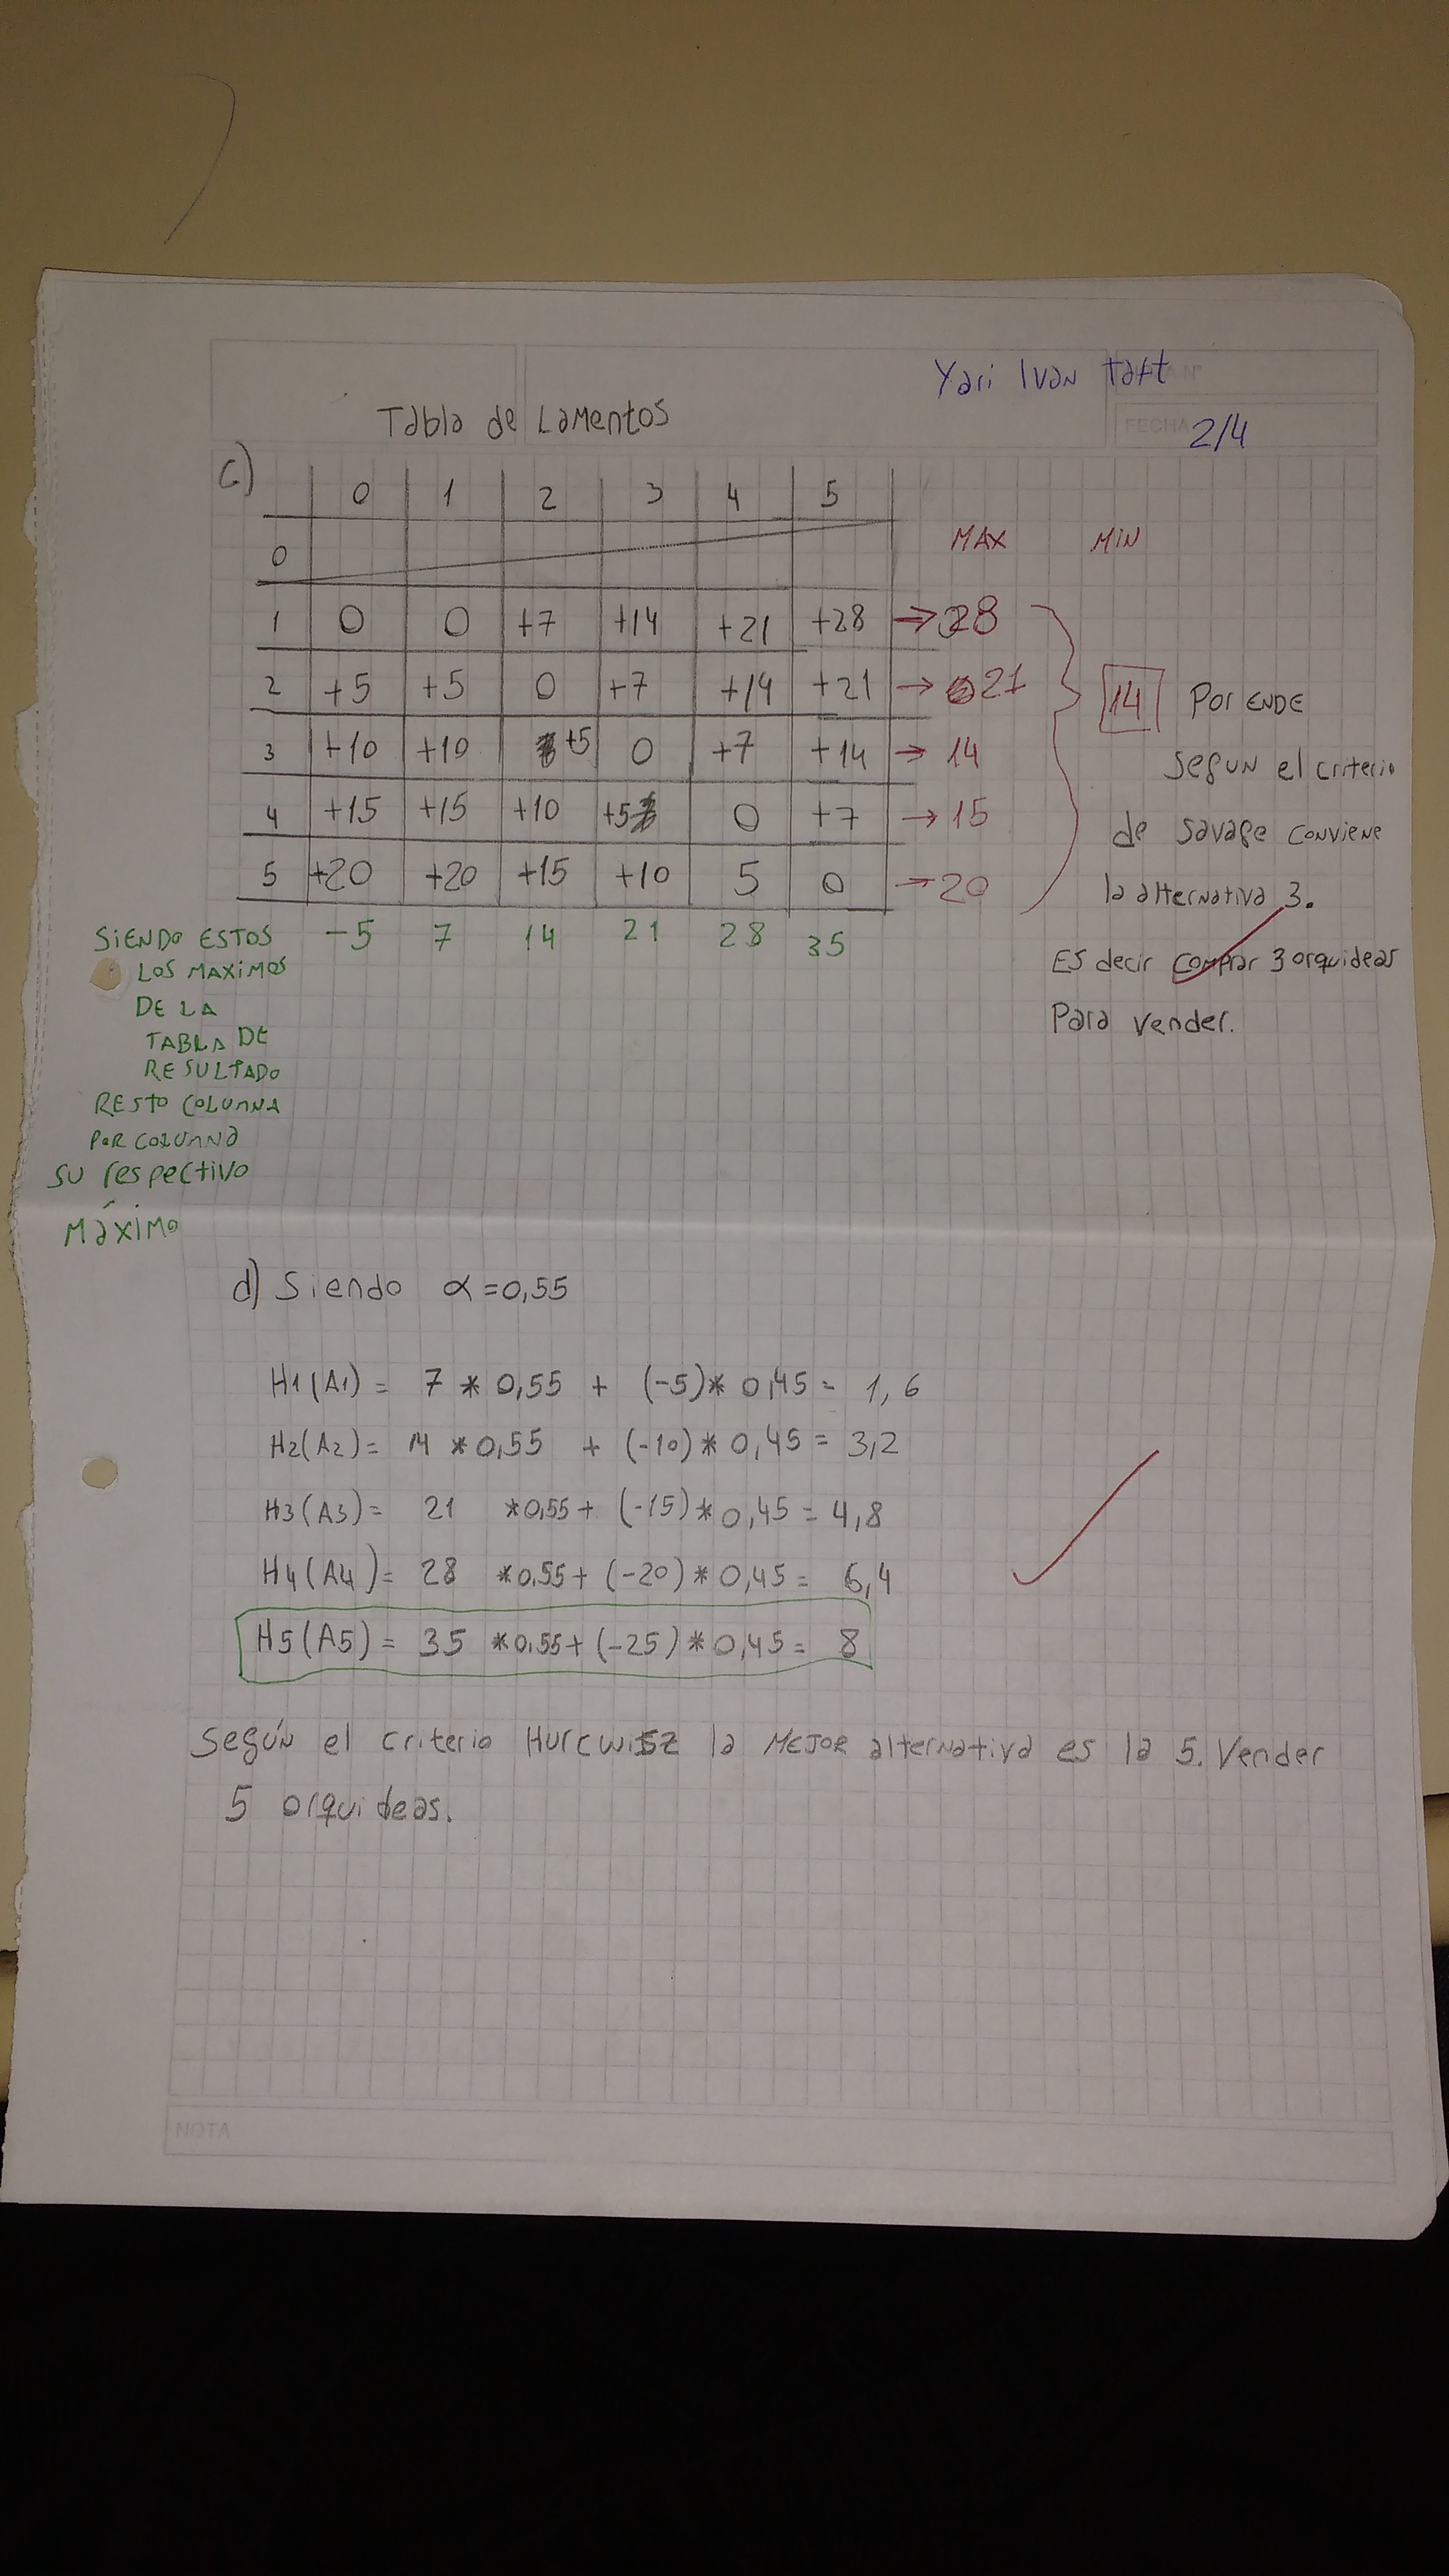 Yari Ivan tatt
Tabla de Lamentos
FECHA 2/4
c)
0 1 2 3 4 5
MAX MiN
0
1 0 0 +7 +14 +21 +28 → 28
2 +5 +5 0 +7 +14 +21 → 21
3 +10 +10 +5 0 +7 +14 → 14
4 +15 +15 +10 +5 0 +7 → 15
5 +20 +20 +15 +10 5 0 → 20
-5 7 14 21 28 35
14 Por ENDE
segun el criterio
de savage conviene
la alternativa 3.
Es decir comprar 3 orquideas
Para vender.
SiENDO ESTOS
LOS MAXiMOS
DE LA
TABLA DE
RESULTADO
RESto COLUMNA
POR COLUMNA
su respectivo
Máximo
d) Siendo α = 0,55
H1(A1) = 7 * 0,55 + (-5)* 0,45 = 1,6
H2(A2) = 14 * 0,55 + (-10)* 0,45 = 3,2
H3(A3) = 21 *0,55 + (-15)* 0,45 = 4,8
H4(A4) = 28 *0,55 + (-20)* 0,45 = 6,4
H5(A5) = 35 *0,55 + (-25)* 0,45 = 8
según el criterio Hurcwisz la MEJOR alternativa es la 5. Vender
5 orquideas.
NOTA